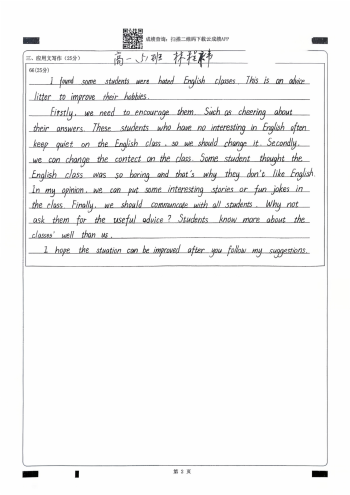 成绩查询：扫描二维码下载云成绩APP
三、应用文写作（25分）
高一 5/班 林
66(25分)
I found some students were hated English classes. This is an advice
litter to improve their hobbies.
Firstly, we need to encourage them. Such as cheering about
their answers. These students who have no interesting in English often
keep quiet on the English class, so we should change it. Secondly,
we can change the contect on the class. Some student thought the
English class was so boring and that's why they don't like English.
In my opinion, we can put some interesting stories or fun jokes in
the class. Finally, we should communcate with all students. Why not
ask them for the useful advice? Students know more about the
classes' well than us.
I hope the stuation can be improved after you follow my suggestions.
第 2 页